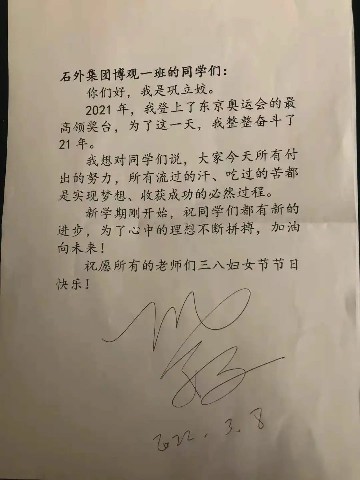 石外集团博观一班的同学们：
你们好，我是巩立姣。
2021年，我登上了东京奥运会的最
高领奖台，为了这一天，我整整奋斗了
21年。
我想对同学们说，大家今天所有付
出的努力，所有流过的汗、吃过的苦都
是实现梦想、收获成功的必然过程。
新学期刚开始，祝同学们都有新的
进步，为了心中的理想不断拼搏，加油
向未来！
祝愿所有的老师们三八妇女节节日
快乐！
2022.3.8